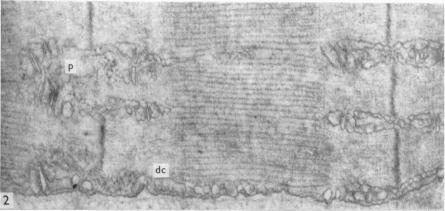 p
dc
2